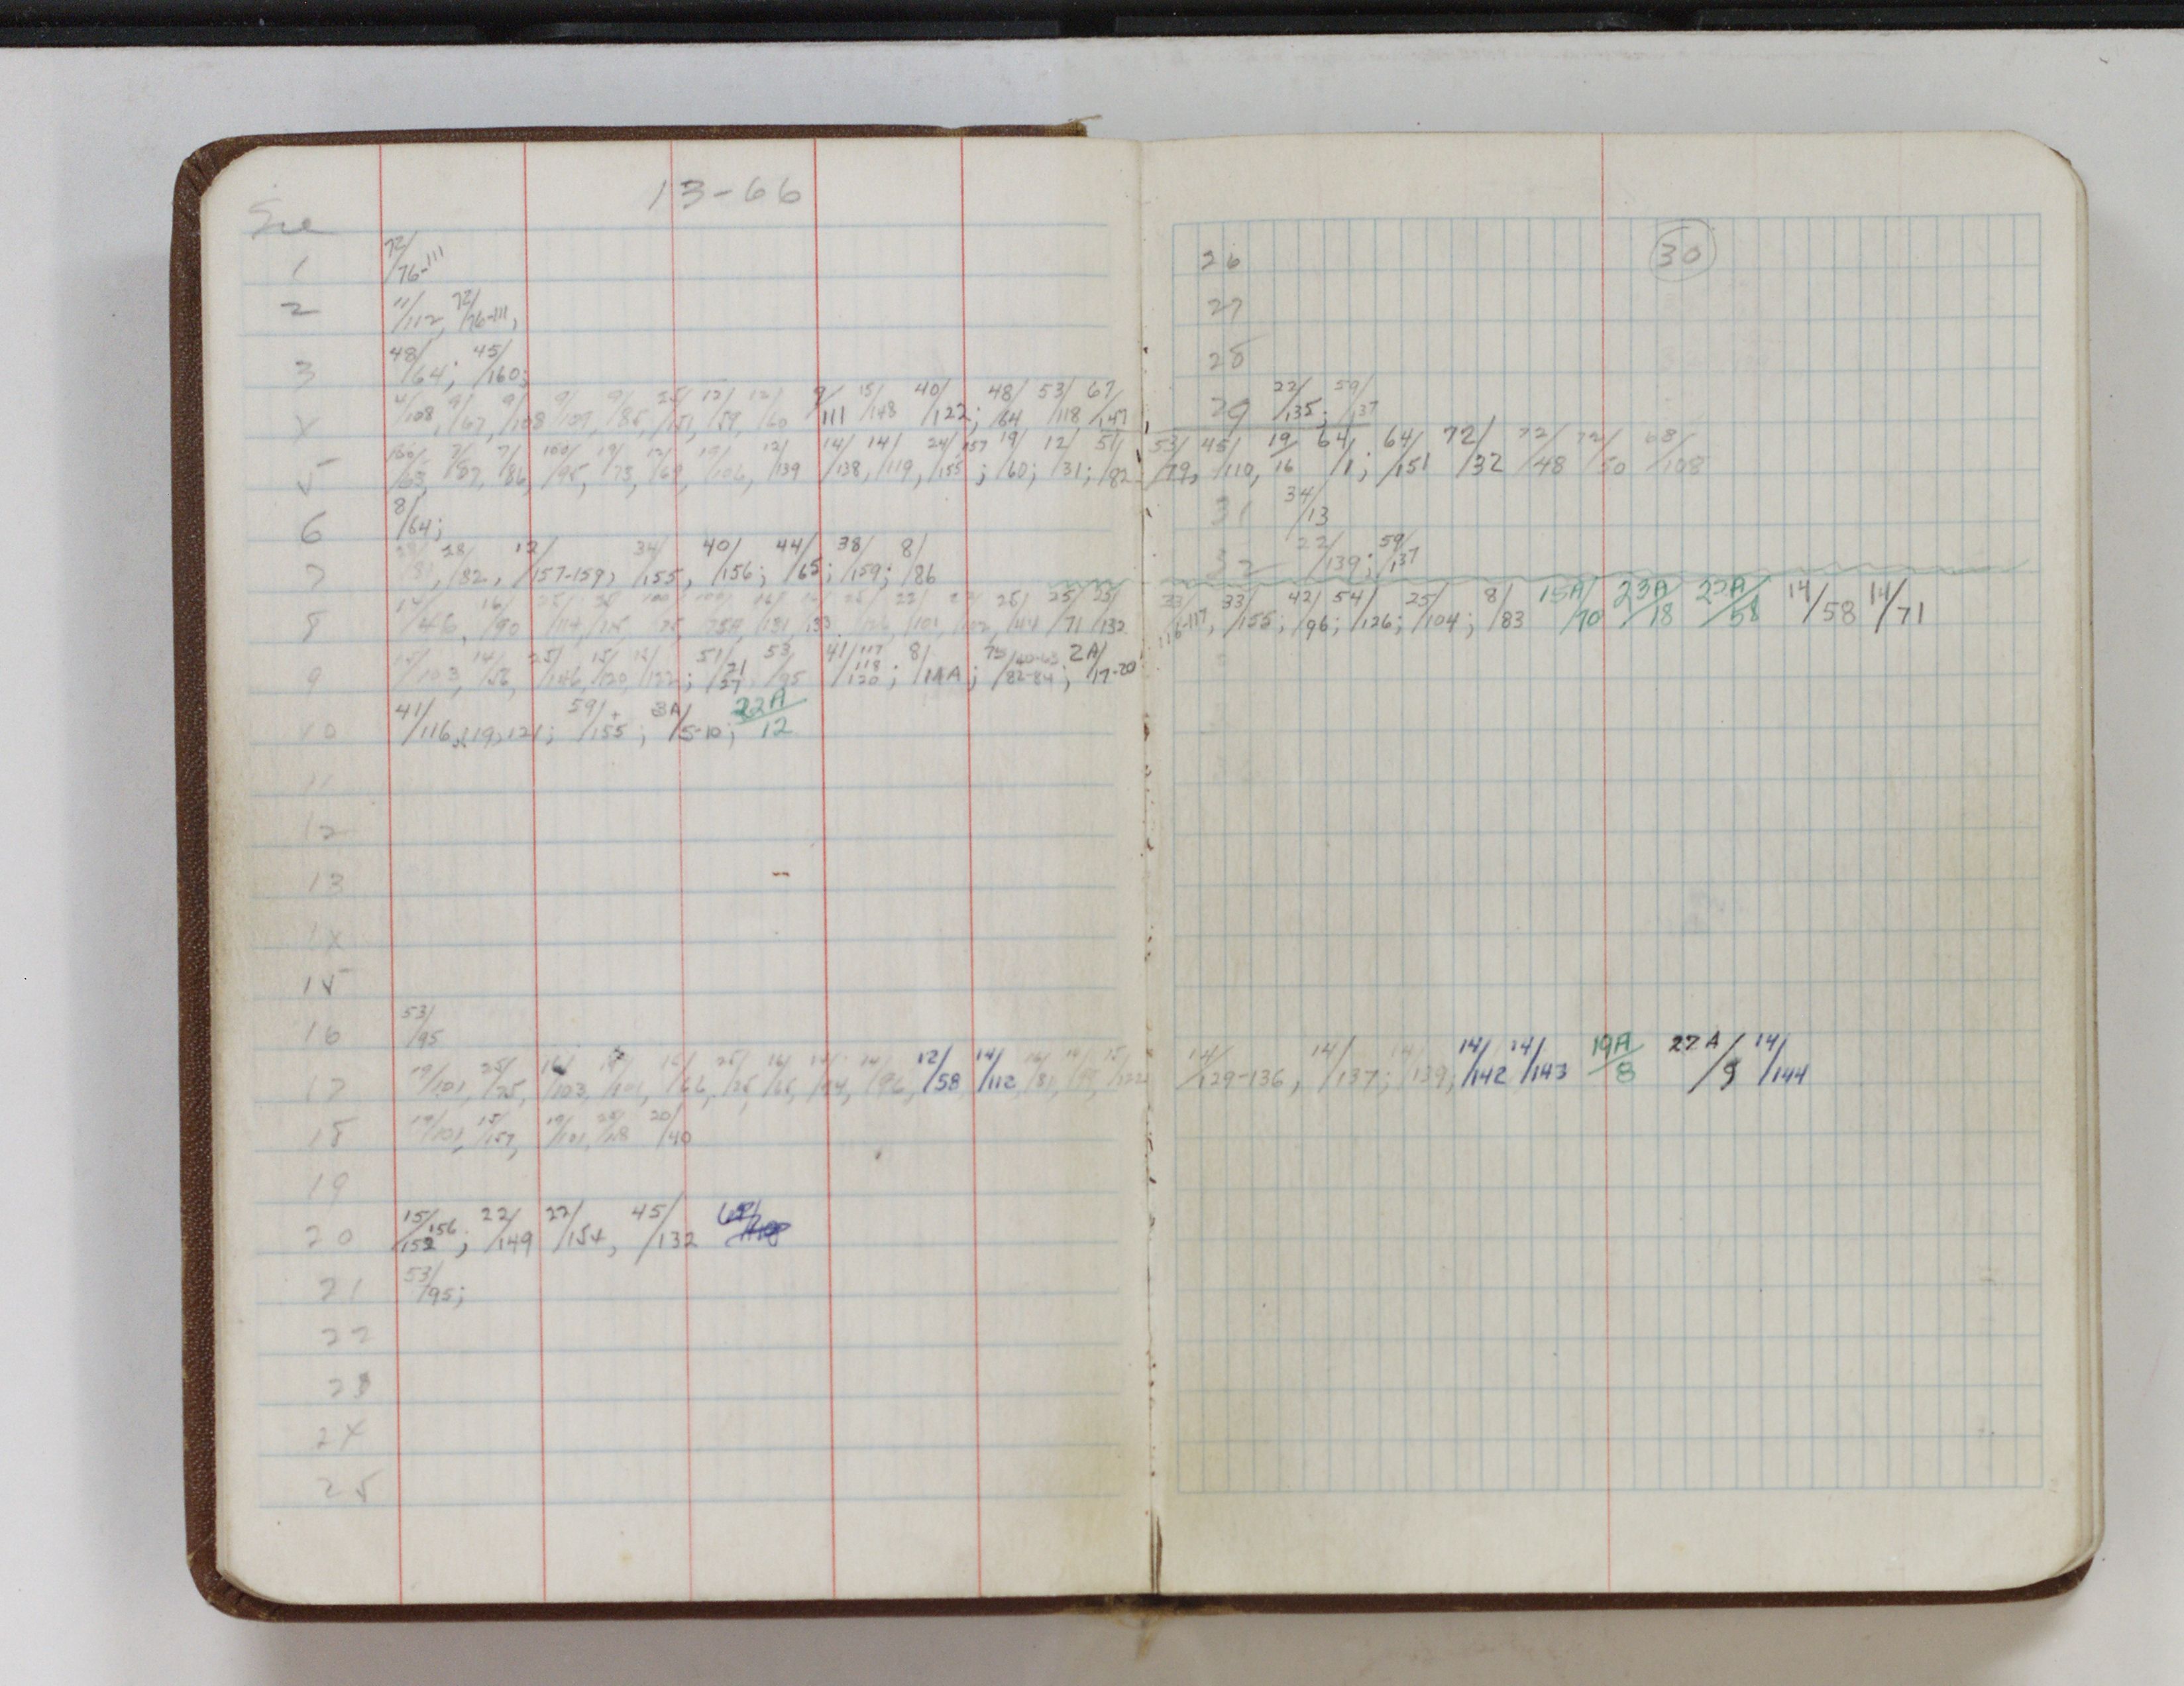 13-66
Sec
1 72/76-111
2 11/112, 72/76-111,
3 48/64; 45/160;
4 4/108, 9/67, 9/108 9/109, 9/85, 12/59, 12/60 9/111 15/148 40/122; 48/64 53/118 67/147
5 100/63, 7/87, 7/86, 100/95, 19/73, 12/69, 19/106, 12/139 14/138, 14/119, 24/155, 157; 19/60; 12/31; 51/82 53/79, 45/110, 19/16 64/1; 64/151 72/32 72/48 72/50 68/108
6 8/64;
7 28/82, 12/157-159, 34/155, 40/156; 44/65; 38/159; 8/86
8 14/46, 16/90 25/71 25/132 33/116-117, 33/155; 42/96; 54/126; 25/104; 8/83 15A/70 23A/18 14/58 14/71
9 15/103, 14/56, 25/146, 15/120, 15/122; 51/21 27 53/95 41/117 118 120; 8/14A; 75/40-63 82-84; 2A/17-20
10 41/116, 119, 121; 59/155+; 3A/5-10; 22A/12
11
12
13
14
15
16 53/95
17 19/101, 25/75, 16/103, 12/58 14/112 14/129-136, 14/137; 14/139; 14/142 14/143 19A/8 27A/9 14/144
18 19/101, 15/157, 19/101, 20/40
19
20 15/152 156; 22/149 22/154, 45/132
21 53/95;
22
23
24
25
30
26
27
28
29 22/135; 59/137
31 34/13
32 22/139; 59/137